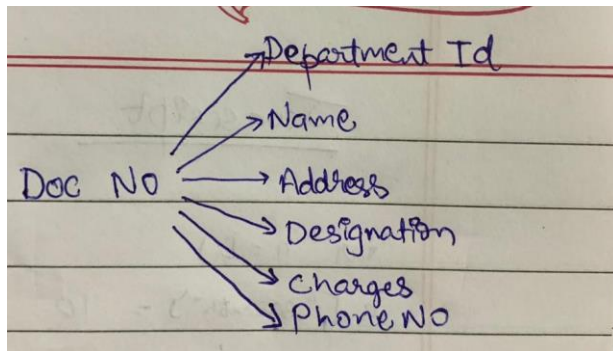 Department Id
Name
Doc NO
Address
Designation
Charges
Phone NO